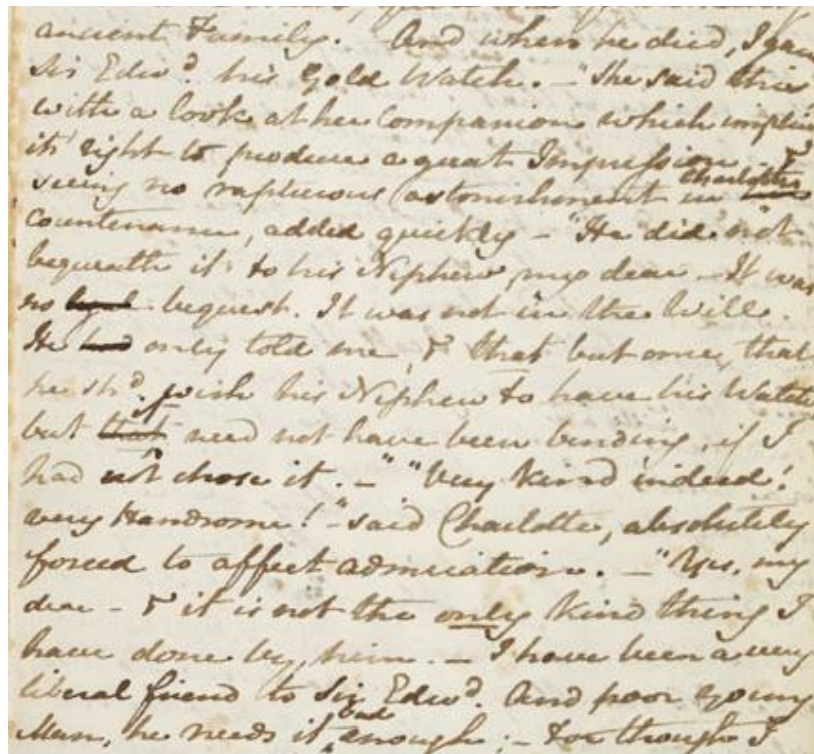 ancient Family. And when he died, I gave
Sir Edwd. his Gold Watch. - "She said this
with a look at her Companion which implied
its right to produce a great Impression - &
seeing no rapturous astonishment in Charlotte's
countenance, added quickly - "He did not
bequeath it to his Nephew, my dear - It was
no legal bequest. It was not in the Will.
He had only told me, & that but once, that
he shd. wish his Nephew to have his Watch;
but that it need not have been binding, if I
had not chose it. -" "Very Kind indeed!
very Handsome!" - said Charlotte, absolutely
forced to affect admiration. - "Yes, my
dear - & it is not the only kind thing I
have done by him. - I have been a very
liberal friend to Sir Edwd. And poor young
Man, he needs it bad enough; - For though I